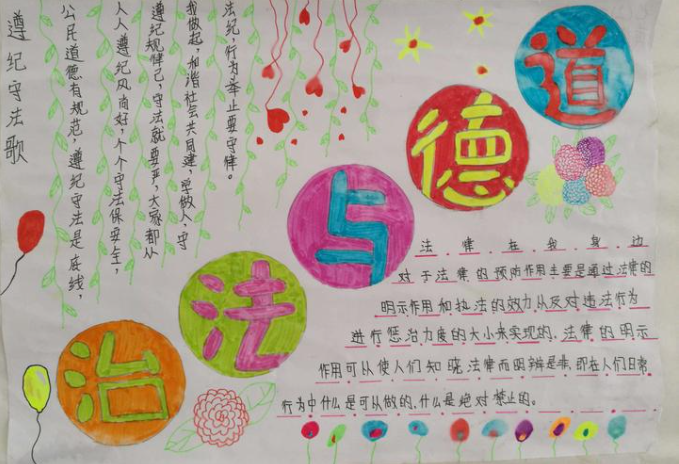 道
德
与
法
治
遵纪守法歌
公民道德有规范，遵纪守法是底线，
人人遵纪风尚好，个个守法保安全，
遵纪规律己，守法就要严，大家都从
我做起，和谐社会共同建，学做人，守
法纪，行为举止要守律。
法律在我身边
对于法律的预防作用主要是通过法律的
明示作用和执法的效力从反对违法行为
进行惩治力度的大小来实现的，法律的明示
作用可以使人们知晓，法律而明辨是非，即在人们日常
行为中什么是可以做的，什么是绝对禁止的。